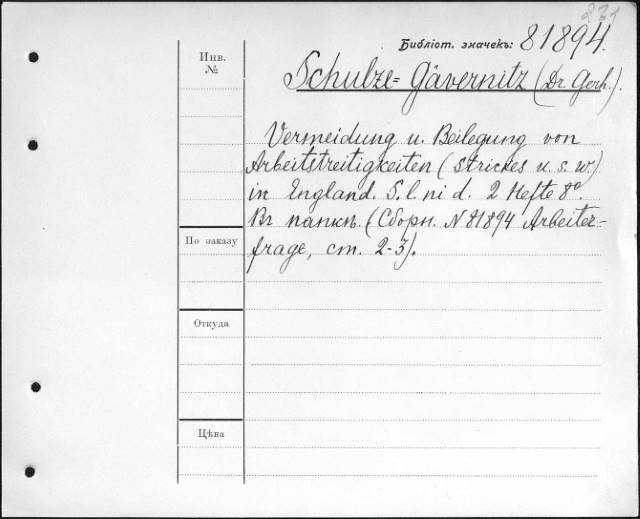 231
Библіот. значекъ: 81894.
Инв.
№
Schulze=Gävernitz (Dr. Gerh.).
Vermeidung u. Beilegung von
Arbeitstreitigkeiten (Strickes u. s. w.)
in England. S. l. ni d. 2 Hefte 8º.
Въ папкѣ. (Сборн. N 81894 Arbeiter-
frage, ст. 2-3).
По заказу
Откуда
Цѣна